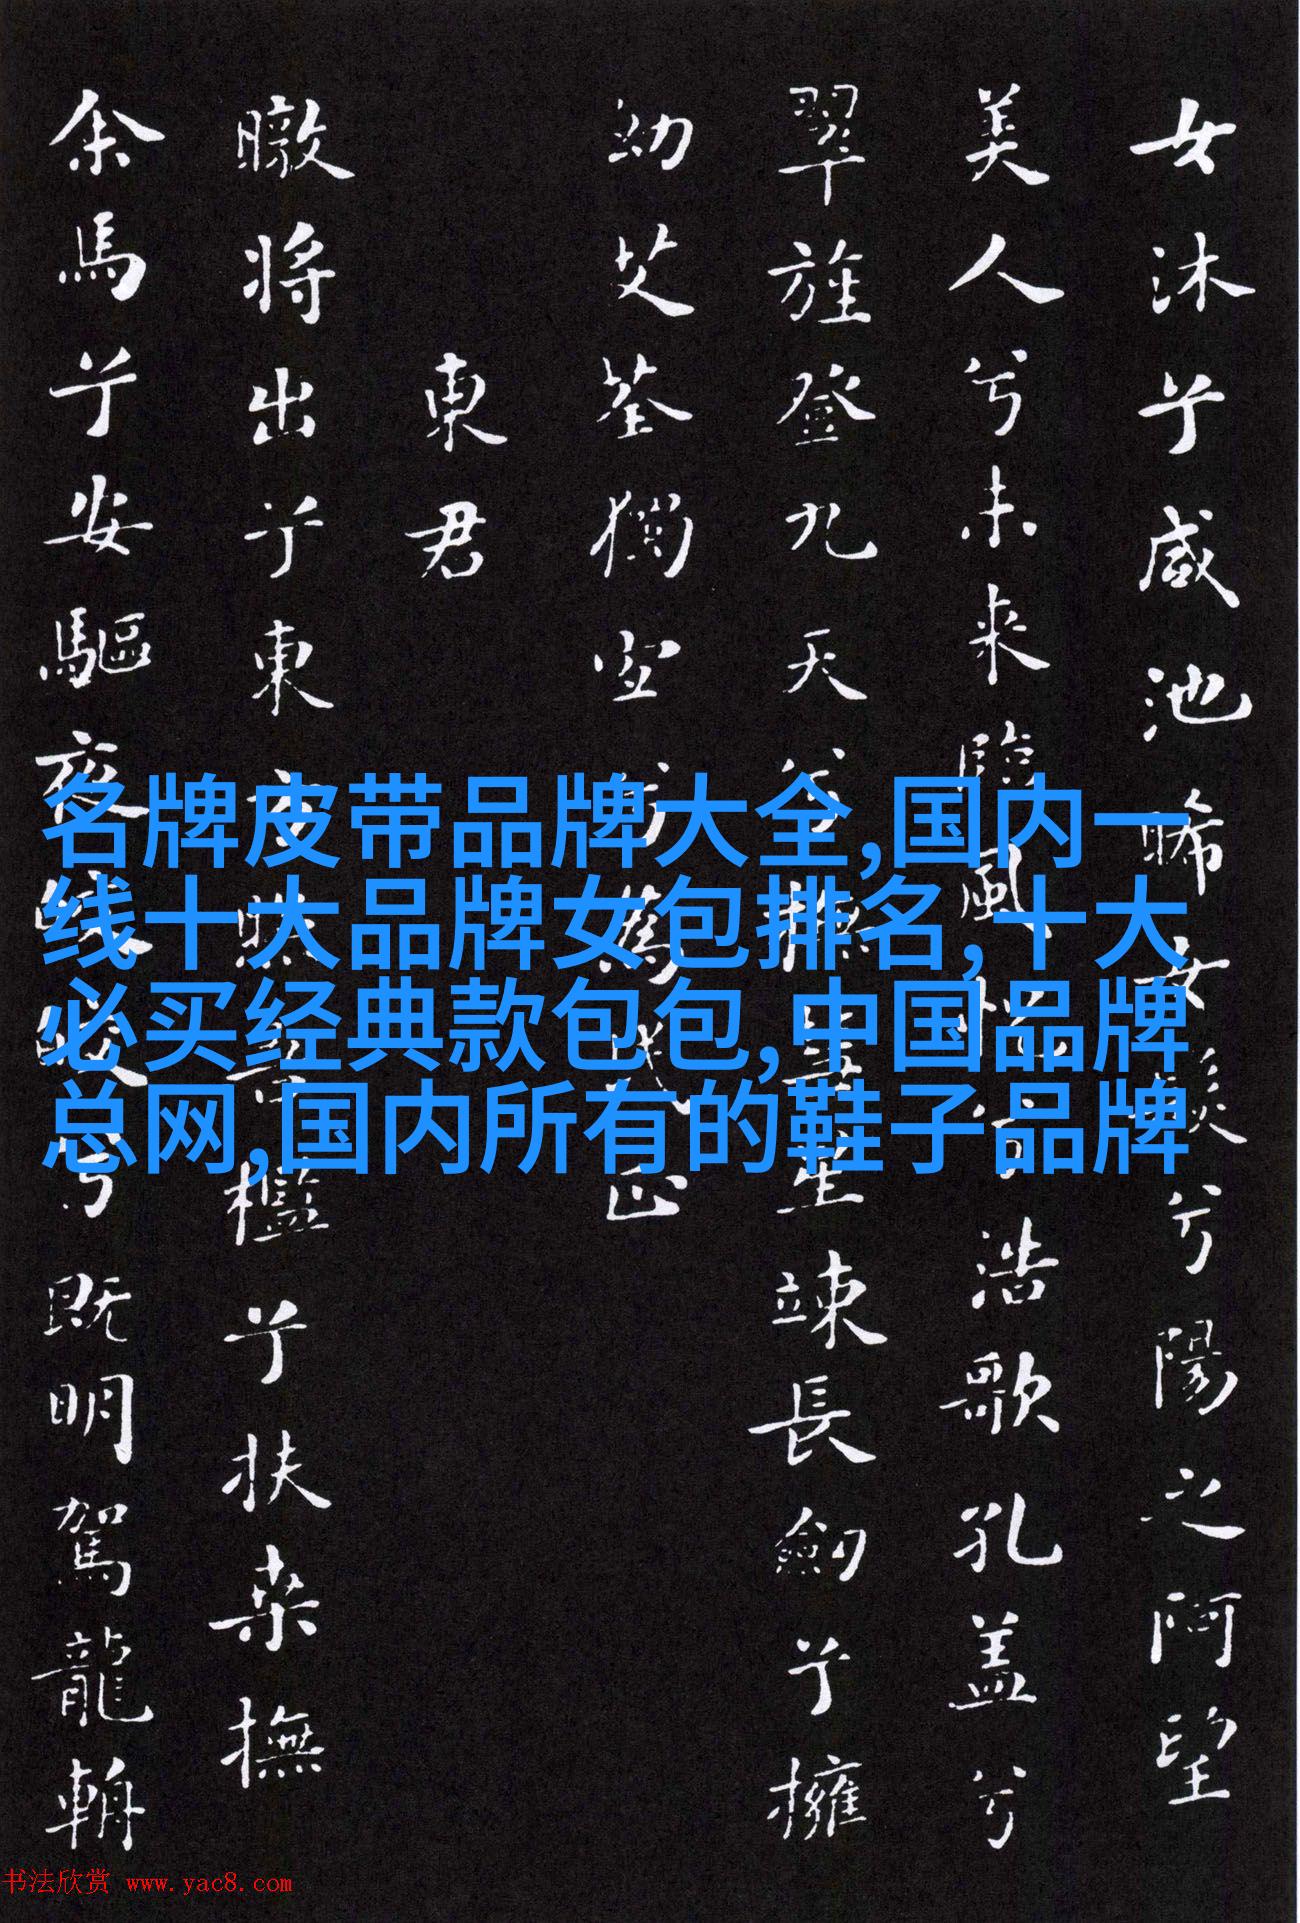 女沐兮咸池晞女髮兮陽之阿望
美人兮未来臨風怳兮浩歌孔盖兮
翠旌登九天兮撫彗星竦長劍兮擁
幼艾荃獨宜兮爲民正
東君
暾将出兮東方照吾檻兮扶桑撫
余馬兮安驅夜晈晈兮既明駕龍輈
名牌皮带品牌大全,国内一
线十大品牌女包排名,十大
必买经典款包包,中国品牌
总网,国内所有的鞋子品牌
书法欣赏 www.yac8.com